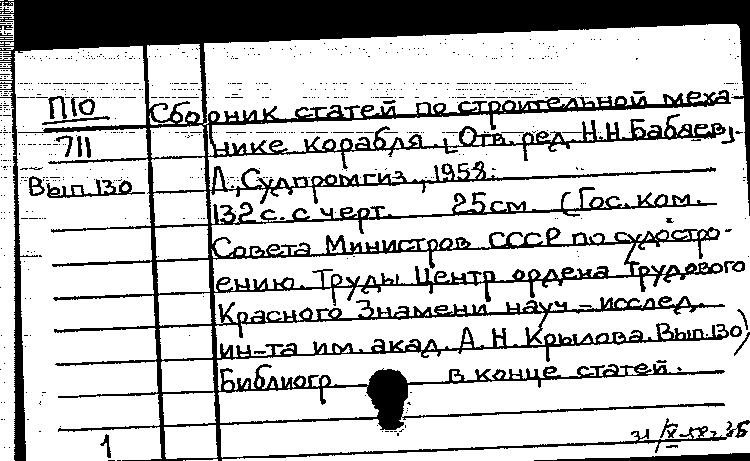 П10 Сборник статей по строительной меха-
711 нике корабля. [Отв. ред. Н.Н.Бабаев].
Вып.130 Л., Судпромгиз, 1958.
132 с. с черт. 25см (Гос. ком.
Совета Министров СССР по судостро-
ению. Труды Центр ордена Трудового
Красного Знамени науч.-исслед.
ин-та им. акад. А.Н. Крылова. Вып.130)
Библиогр. в конце статей.
1